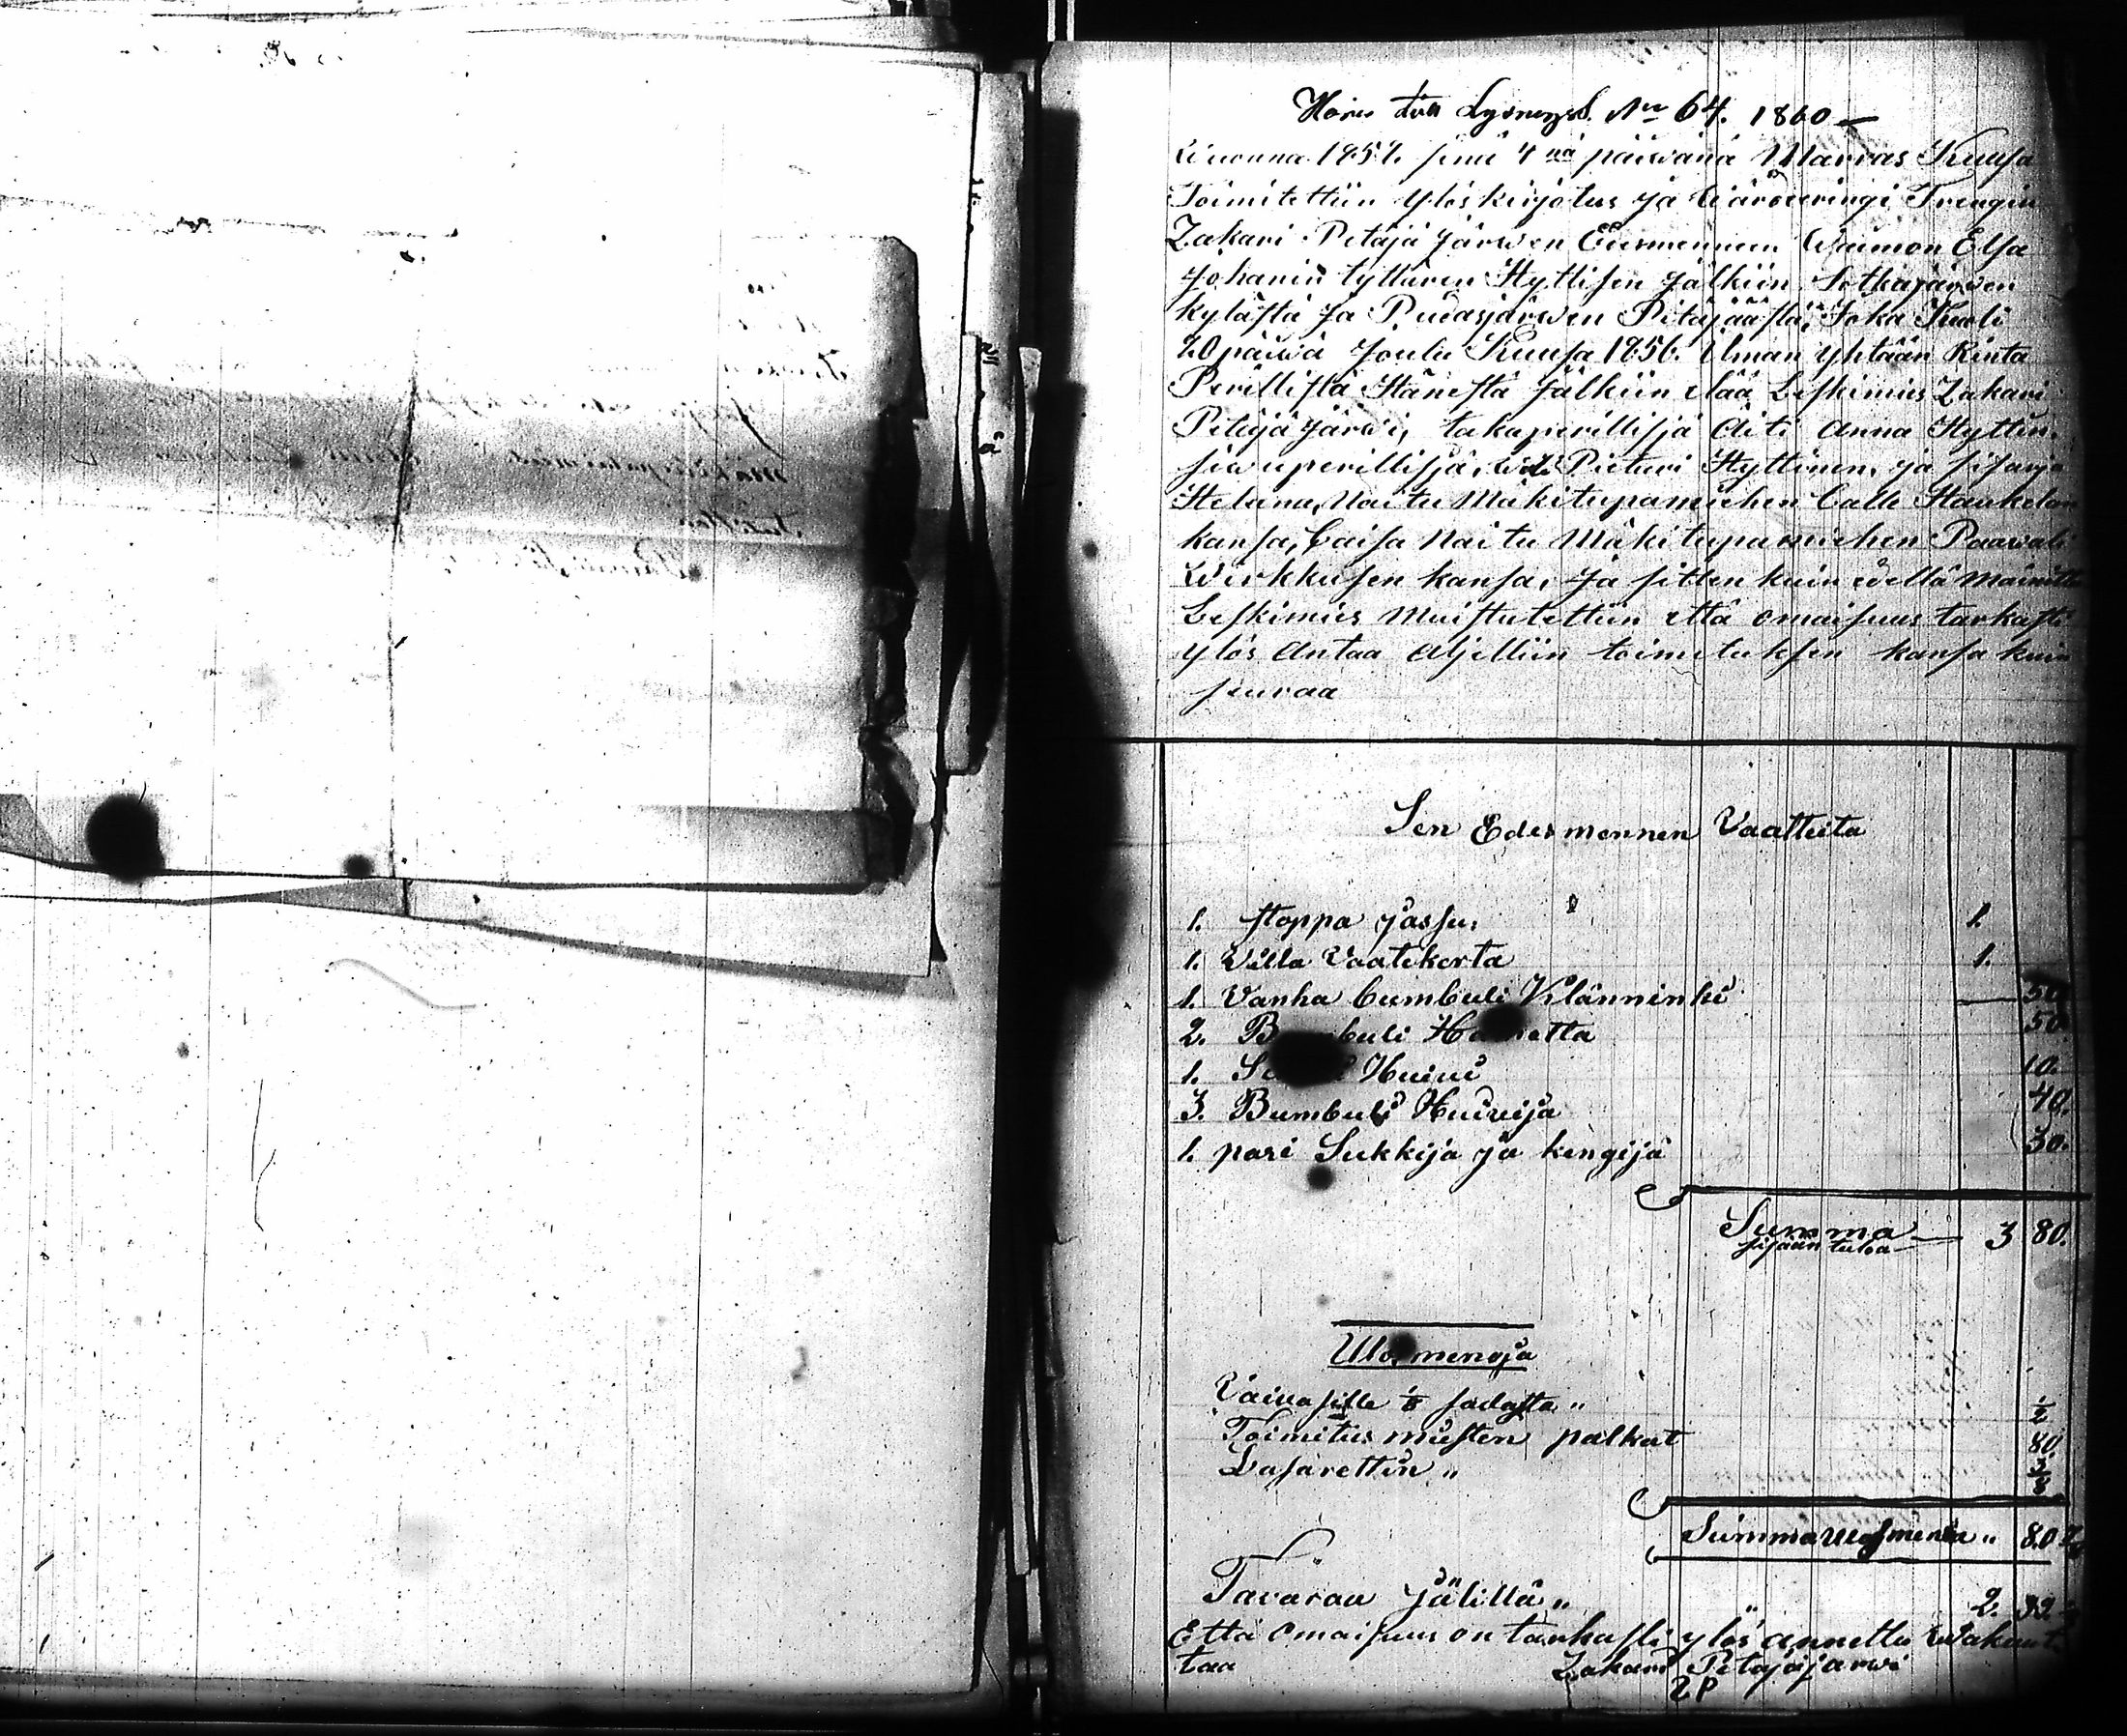 No 64. 1860 —
Wuonna 1857. sinä 4 nä päiwänä Marras Kuusa
Toimitettiin ylöskirjotus ja Wärdeeringi Trengin
Zakari Petäjä järwen Edesmenneen Waimon Elsa
Johanin tyttären Hyttisen jälkiin Sotkajärwen
kylästä ja Pudasjärwen Pitäjäästä, Joka Kuoli
20 päiwä Joulu Kuusa 1856. Ilman yhtään Rinta
Perillistä Hänestä jälkiin elää Leskimies Zakari
Petäjä järwi, takaperillisjä äiti Anna Hyttin.
siwuperillisjä, weli Pieturi Hyttinen, ja sisarja
Helena, Naitu Mäkitupamiehen Calle Haukelan
kansa, Caisa Naitu Mäkitupamiehen Paawali
Wirkkusen kansa, Ja sitten kuin edellä mainittu
Leskimies Muistutettiin että omaisuus tarkasti
ylös Antaa Aljettiin toimituksen kansa kuin
seuraa
Sen Edesmennen Vaatteita
1. stoppa jassu, 1.
1. Villa Vaatekerta 1.
1. Vanha Cumbuli Klänninki — 50
2. 50
1. Huivi 10.
3. Bumbuli Huivija 40.
1. pari Sukkija ja kengijä 30.
Summa — 3 80.
sisään tuloa —
Ulosmenoja
Vaivasille 1/8 sadasta „ 1/2
Toimitus miesten palkat 80.
Lasarettiin „ 3/8
Summa ulosmenoa „ 80 7/8
Tavaraa Jälillä „ 2.
Että Omaisuus on tarkasti ylös annettu Wakuut
taa Zakari Petäjäjärwi
ZP